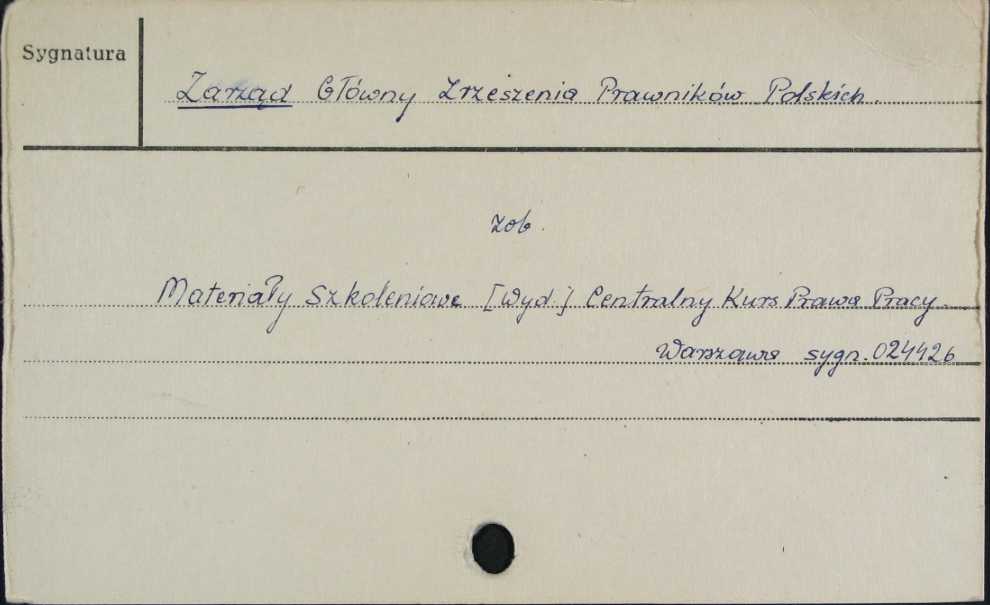 Sygnatura
Zarząd Główny Zrzeszenia Prawników Polskich.
zob.
Materiały Szkoleniowe [Wyd.] Centralny Kurs Prawa Pracy.
Warszawa sygn. 024426